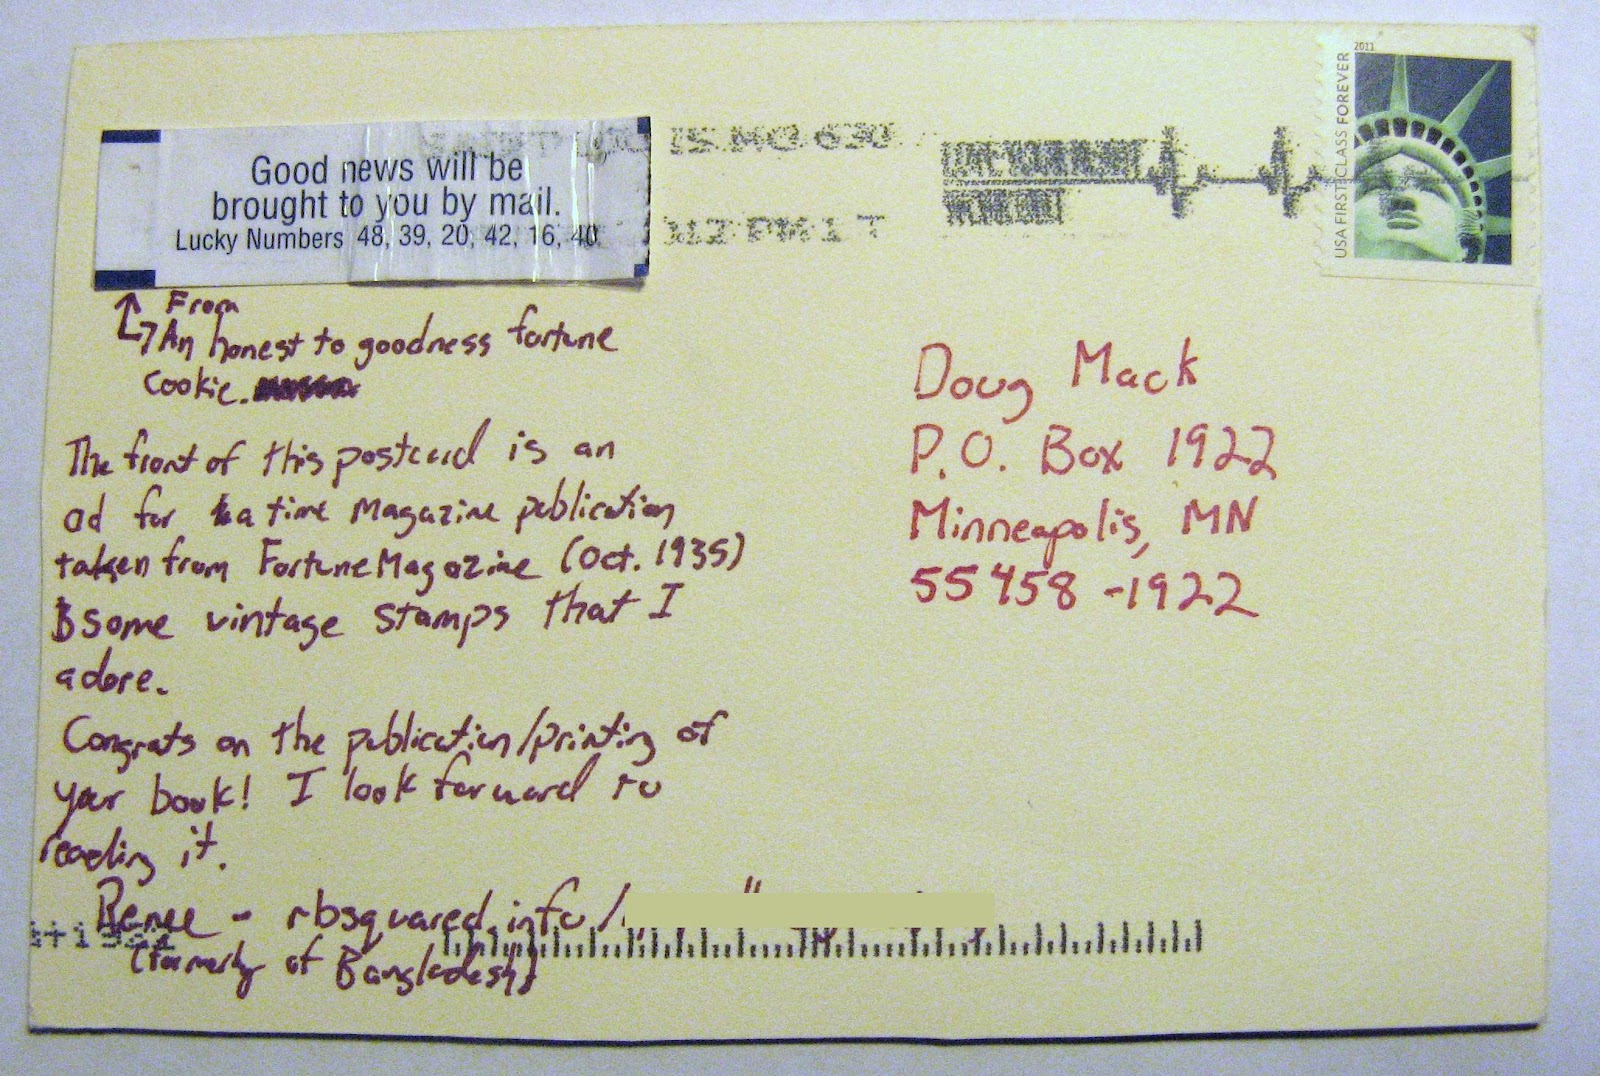 Good news will be
brought to you by mail.
Lucky Numbers 48, 39, 20, 42, 16, 40
IS MO 630
PM 1 T
2011
USA FIRST-CLASS FOREVER
From
An honest to goodness fortune
cookie.
The front of this postcard is an
ad for a time magazine publication
taken from Fortune Magazine (Oct. 1935)
some vintage stamps that I
adore.
Congrats on the publication/printing of
your book! I look forward to
reading it.
Renee - rbsquared.info/
(formerly of Bangladesh)
Doug Mack
P.O. Box 1922
Minneapolis, MN
55458-1922